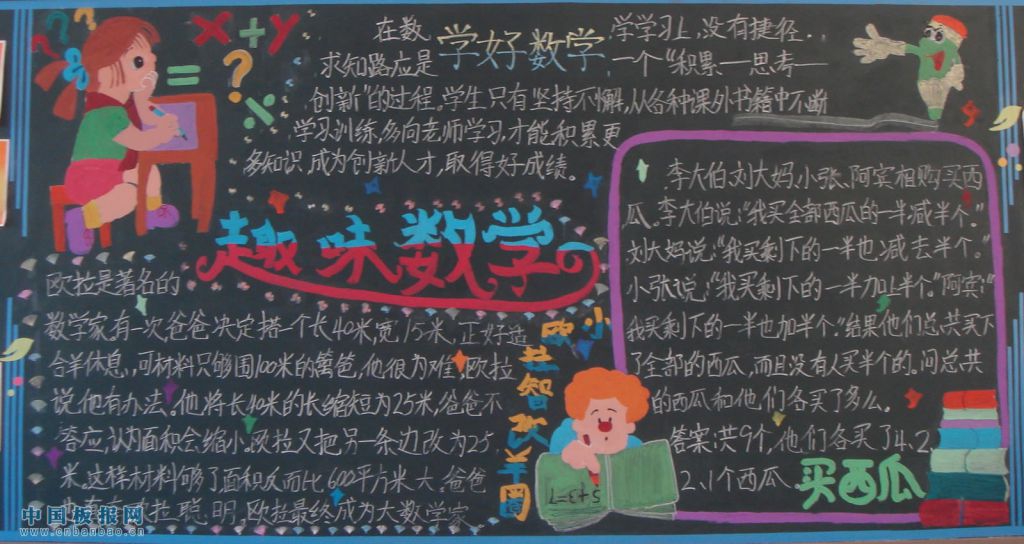 x+y
=
?
%
在数 学好数学 学学习上,没有捷径.
求知路应是 一个“积累—思考—
创新”的过程。学生只有坚持不懈,从各种课外书籍中不断
学习训练,多向老师学习,才能积累更
多知识,成为创新人才,取得好成绩。
趣味数学
欧拉是著名的
数学家有一次爸爸决定搭一个长40米,宽15米,正好造
合羊休息,可材料只够围100米的篱笆,他很为难,欧拉
说他有办法。他将长40米的长缩短为25米,爸爸不
答应,认为面积会缩小,欧拉又把另一条边改为25
米,这样材料够了面积反而比600平方米大。爸爸
拉聪明,欧拉最终成为大数学家
小欧拉智改羊圈
李大伯、刘大妈、小张、阿宾相购买西
瓜。李大伯说:“我买全部西瓜的一半减半个。”
刘大妈说:“我买剩下的一半也减去半个。”
小张说:“我买剩下的一半加上半个。”阿宾:“
我买剩下的一半也加半个.”结果他们总共买下
了全部的西瓜,而且没有人买半个的。问总共
的西瓜和他们各买了多么。
答案:共9个,他们各买了4.2
2.1个西瓜
买西瓜
5+3=7
中国板报网
www.cnbanbao.cn